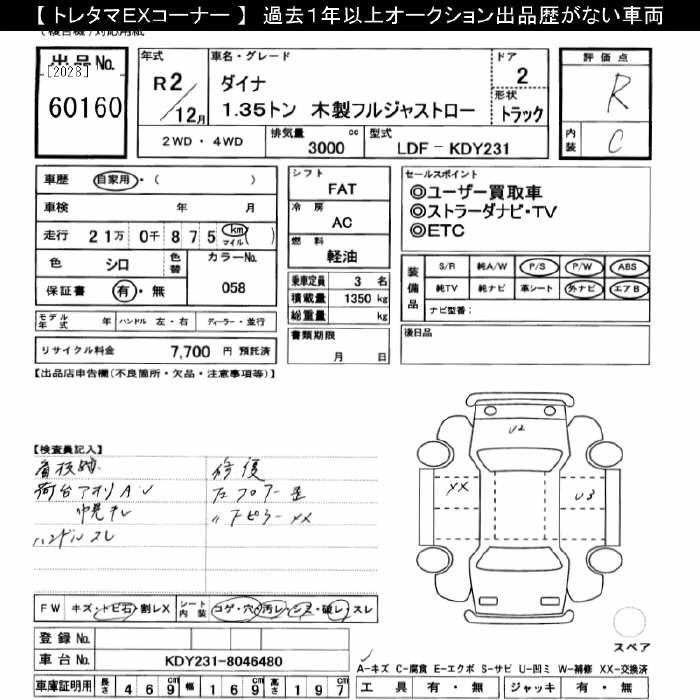 【 トレタマEXコーナー 】 過去1年以上オークション出品歴がない車両
出品No.
[2028]
60160
年式
R2/12月
車名・グレード
ダイナ
1.35トン 木製フルジャストロー
ドア
2
形状
トラック
2WD ・ 4WD
排気量
3000 cc
型式
LDF - KDY231
評価点
R
内装
C
車歴 自家用・( )
車検 年 月
走行 21万 0千 875 km マイル( )
色 シロ 色替
カラーNo.
058
保証書 有・無
モデル年式 年 ハンドル 左・右 ディーラー・並行
リサイクル料金 7,700 円 預託済
シフト
FAT
冷房
AC
燃料
軽油
乗車定員 3 名
積載量 1350 kg
総重量 kg
書類期限
月 日
セールスポイント
◎ユーザー買取車
◎ストラーダナビ・TV
◎ETC
装備品
S/R 純A/W P/S P/W ABS
純TV 純ナビ 革シート 外ナビ エアB
ナビ型番:
後日品
【出品店申告欄(不良箇所・欠品・注意事項等)】
【検査員記入】
荷台アオリ A U
ハンドル スレ
修復
フロアー 歪
〃 Fピラー XX
U2
XX
U3
FW キズ・トビ石・割レX
シート内装 コゲ・穴・汚レ・シミ・破レ・スレ
登録No.
車台No. KDY231-8046480
車庫証明用 長さ 469cm 幅 169cm 高さ 197cm
スペア
A-キズ C-腐食 E-エクボ S-サビ U-凹ミ W-補修 XX-交換済
工具 有・無 ジャッキ 有・無